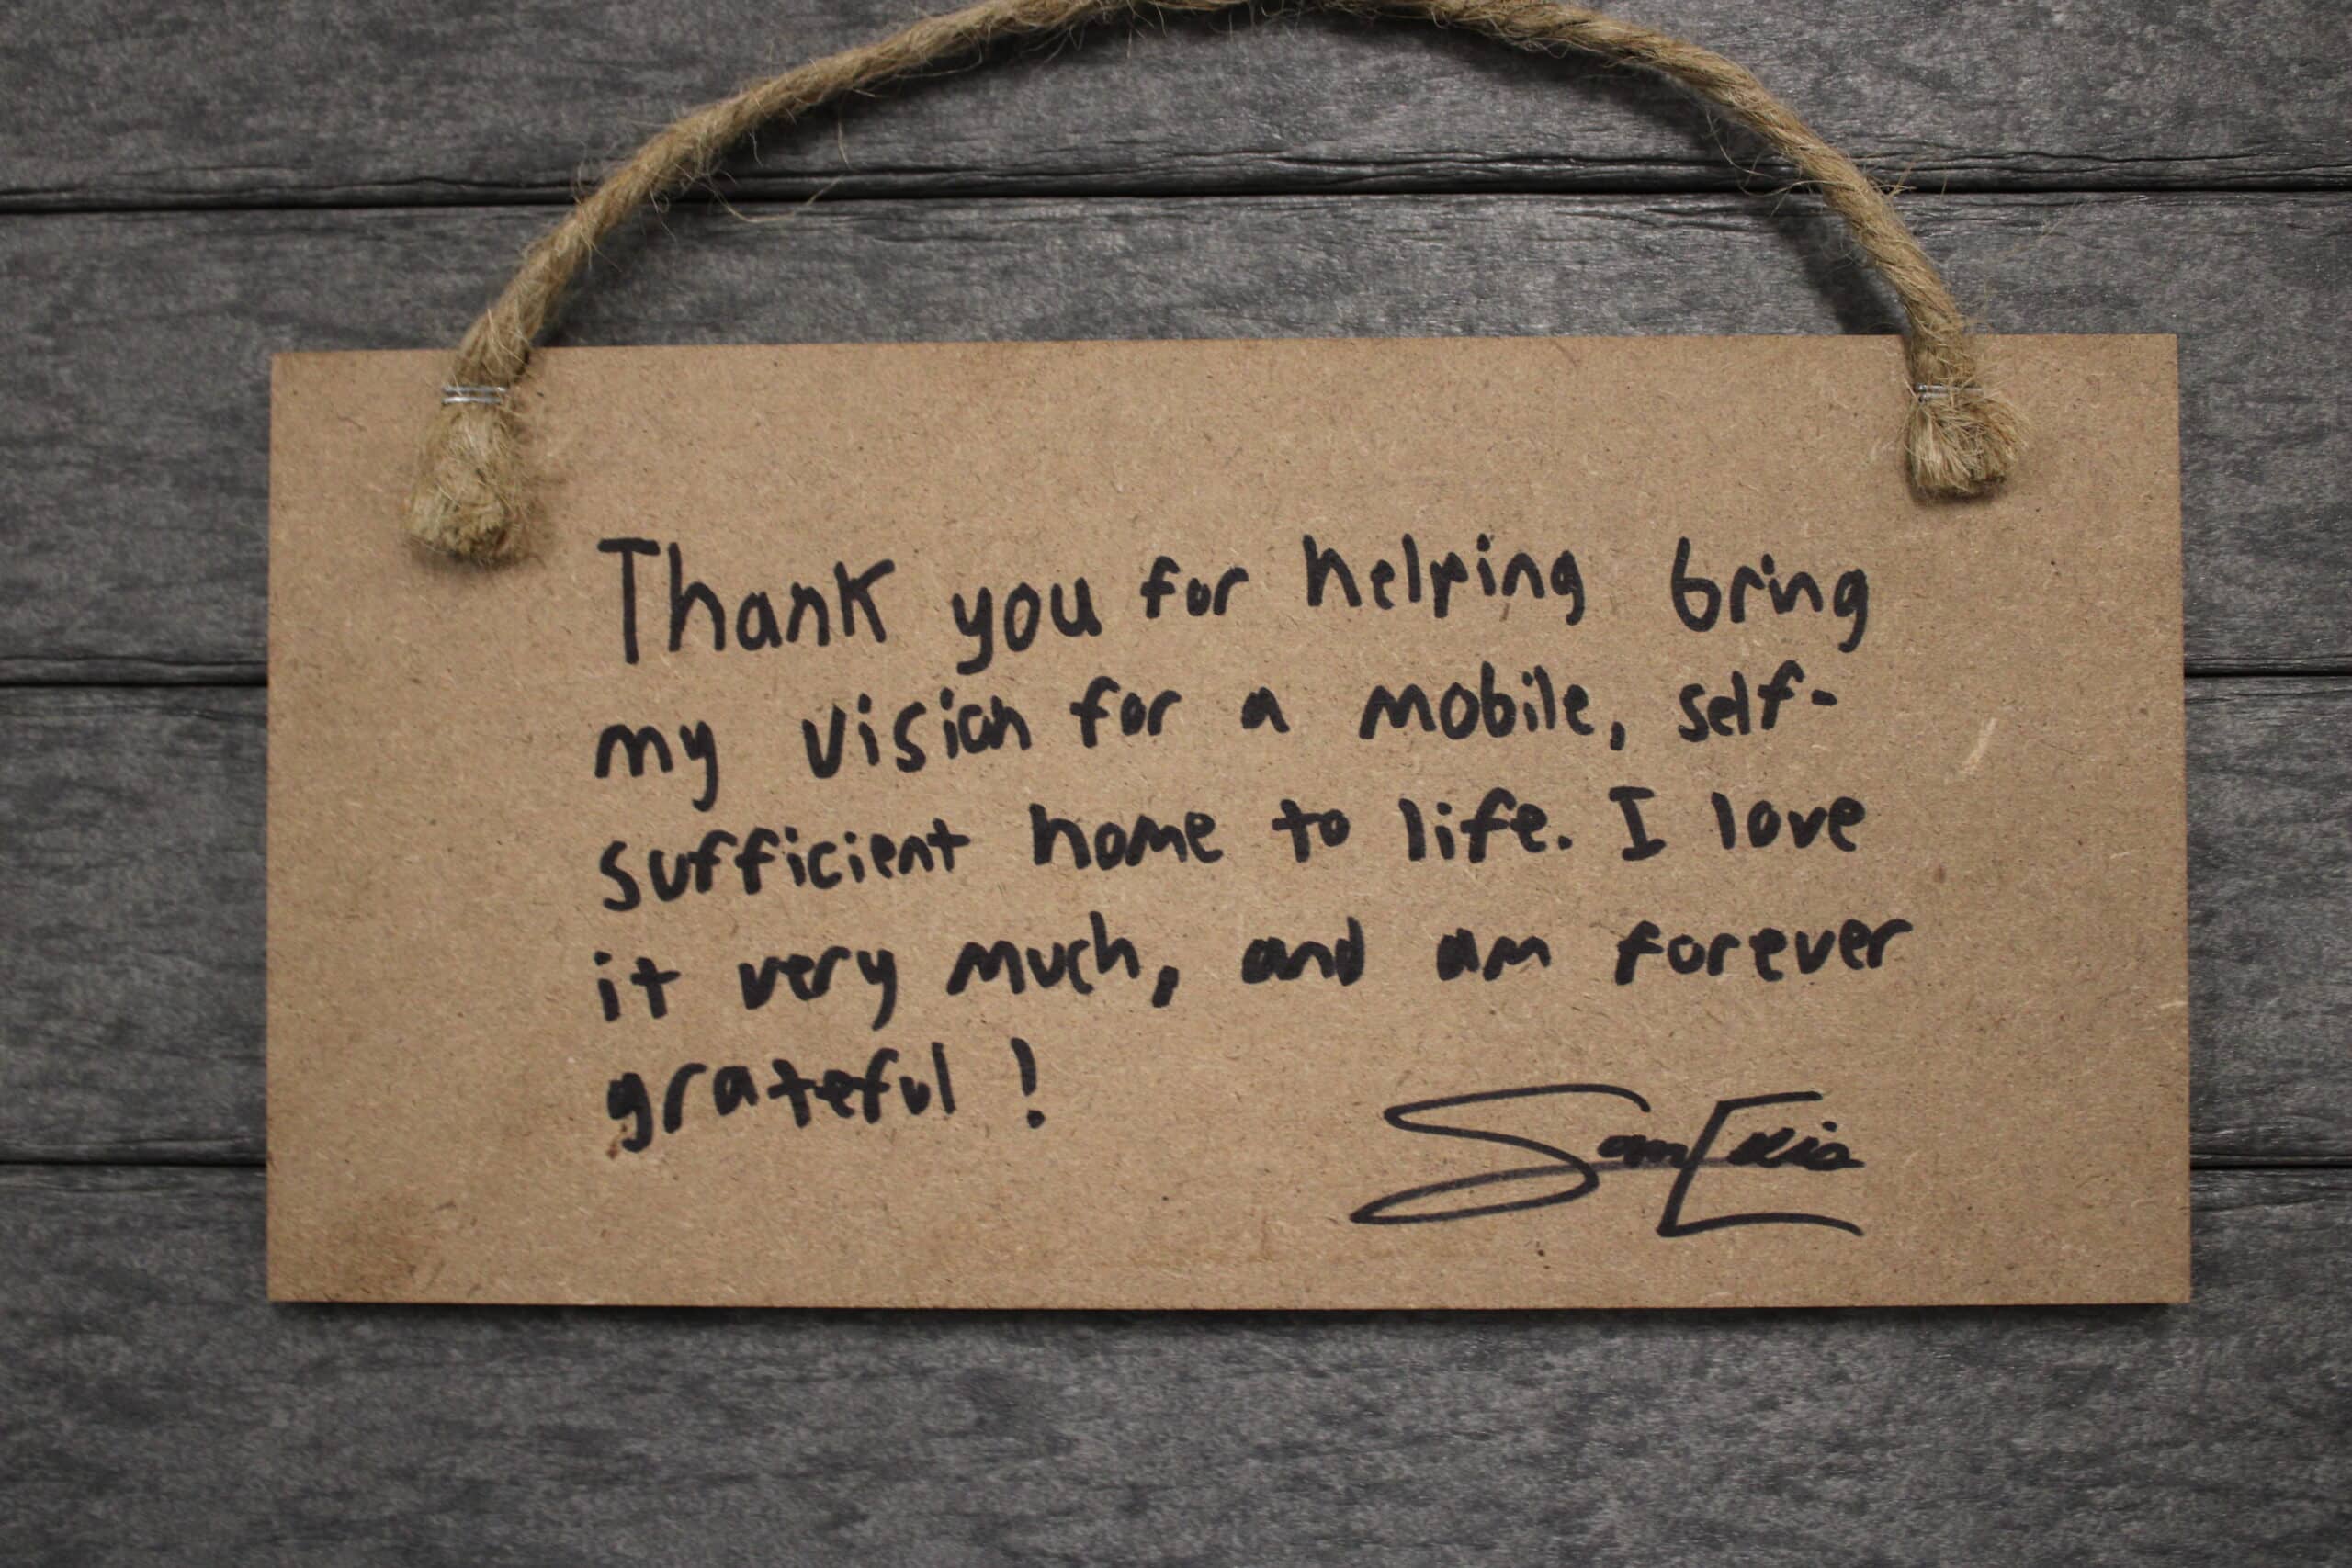 Thank you for helping bring
my vision for a mobile, self-
sufficient home to life. I love
it very much, and am forever
grateful!
Sam